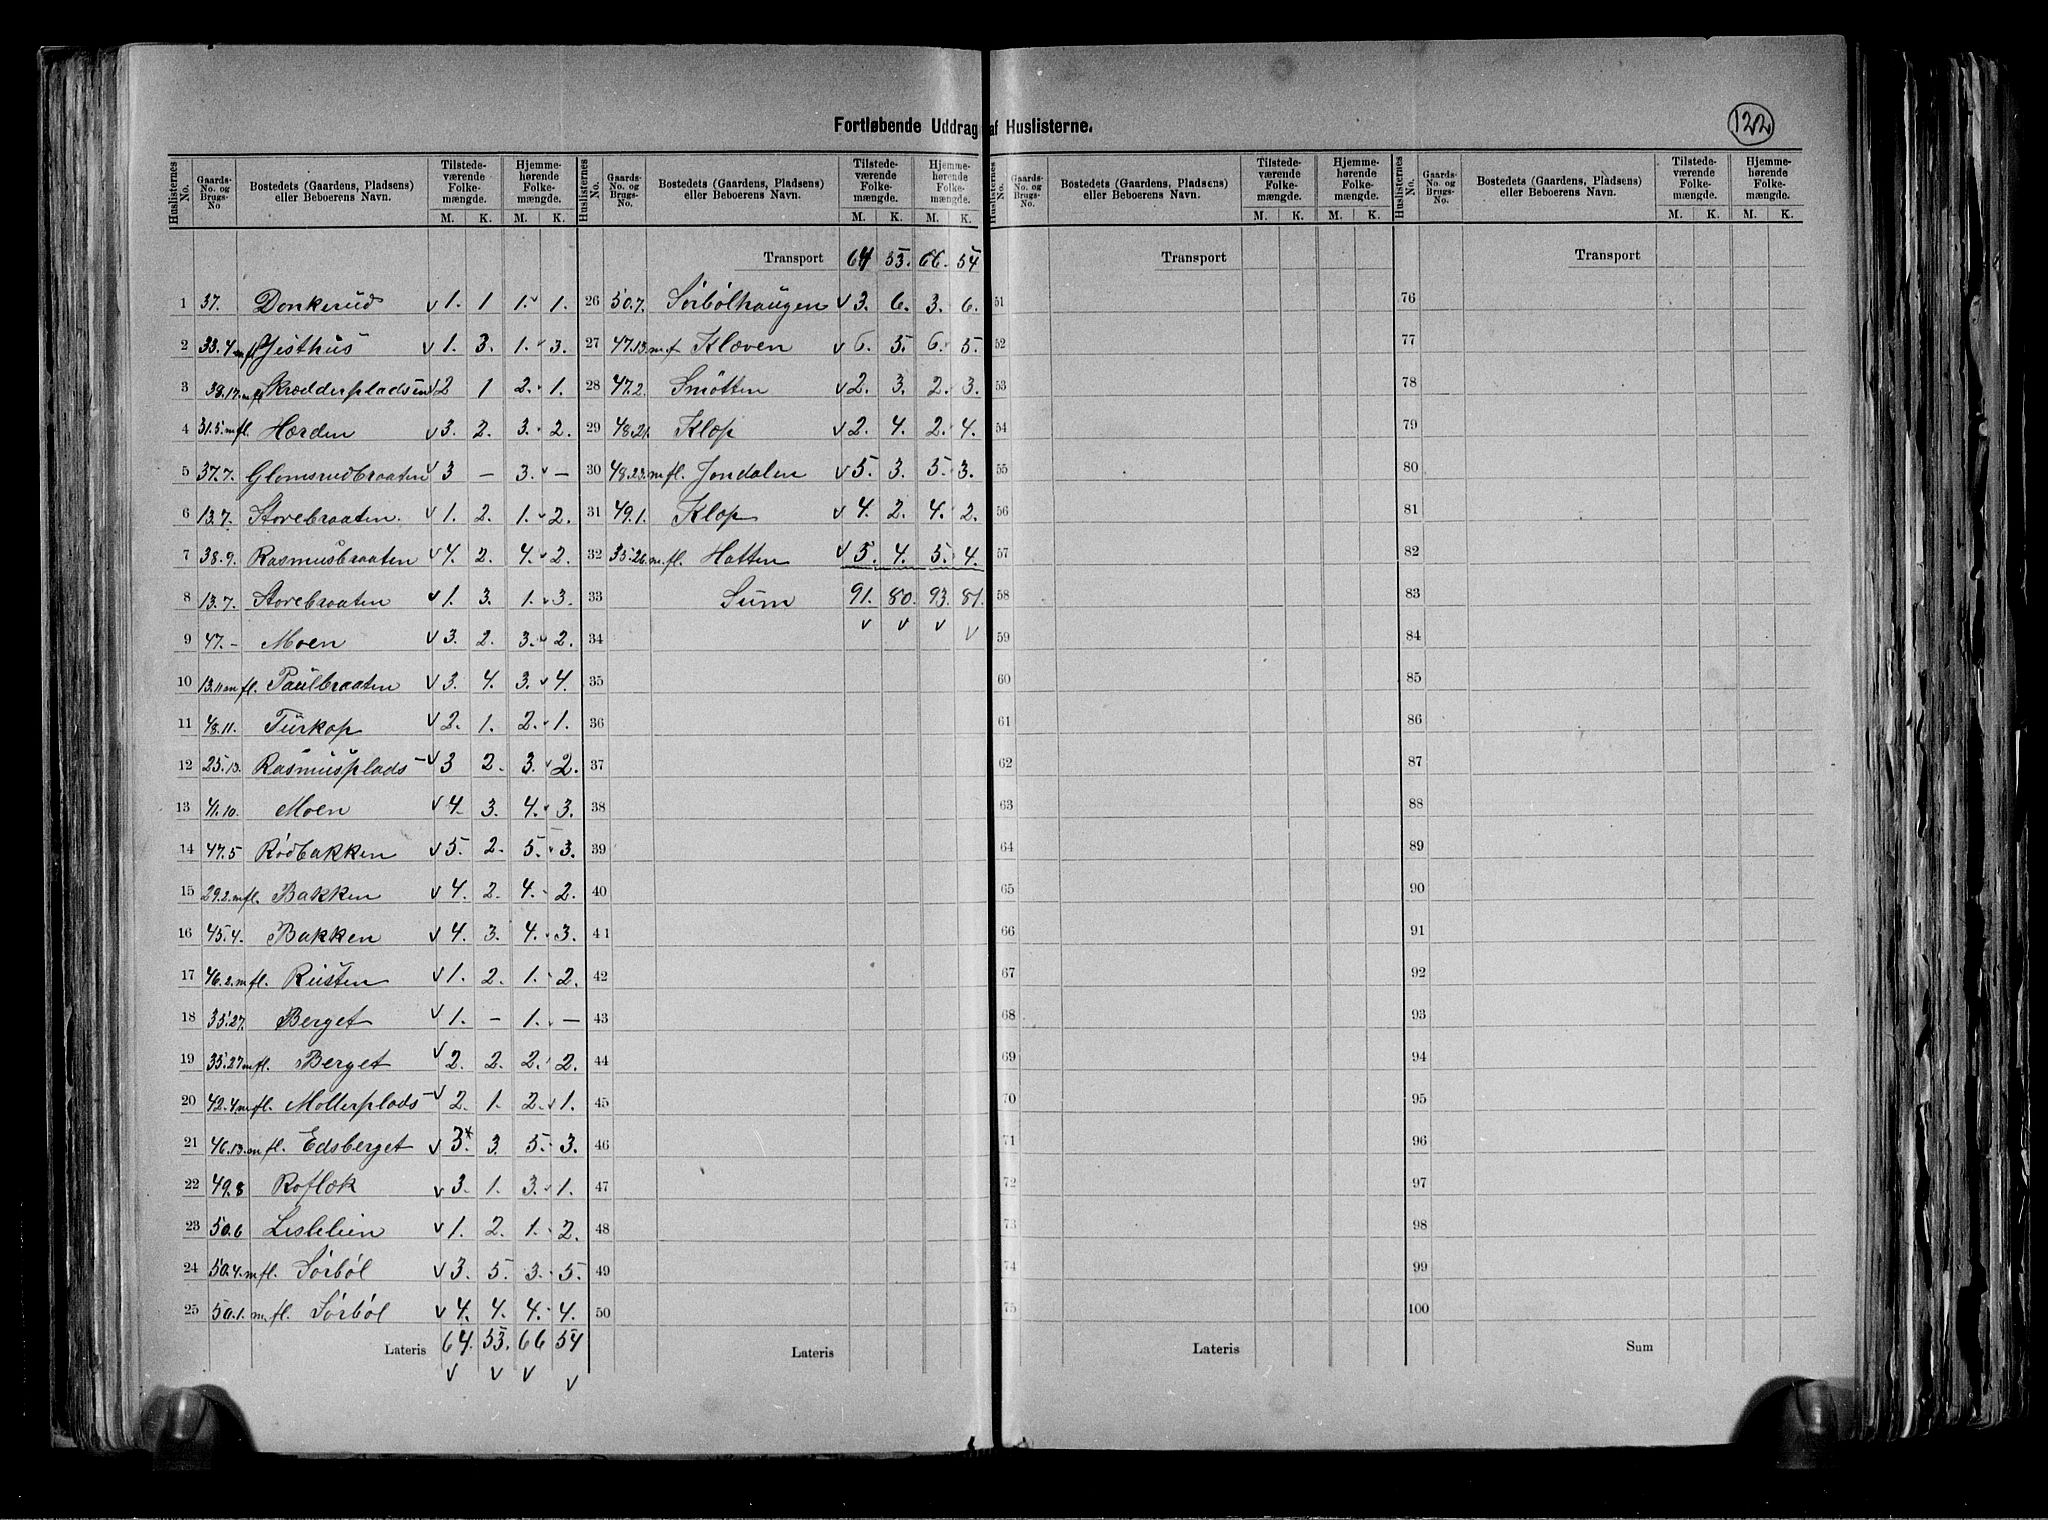 Fortløbende Uddrag af Huslisterne.
122
Huslisternes No. Gaards-No. og Brugs-No Bostedets (Gaardens, Pladsens) eller Beboerens Navn. Tilstede-værende Folke-mængde. M. K. Hjemme-hørende Folke-mængde. M. K.
1 37. Donkerud v 1. 1 1. 1.
2 33.4 mfl Gjesthus v 1. 3. 1. 3.
3 39.17. mfl Skrædderpladsen v 2 1 2. 1.
4 31.5. mfl. Hærden v 3. 2. 3. 2.
5 37.7. Glomsrudbraaten v 3 – 3. –
6 13.7. Storebraaten. v 1. 2. 1. 2.
7 38.9. Rasmusbraaten v 4. 2. 4. 2.
8 13.7. Storebraaten v 1. 3. 1. 3.
9 47. - Moen v 3. 2. 3. 2.
10 13.11 mfl. Paulbraaten v 3. 4. 3. 4.
11 48.11. Turkop v 2. 1. 2. 1.
12 25.13. Rasmusplads – v 3 2. 3. 2.
13 41.10. Moen v 4. 3. 4. 3.
14 47.5 Rødbakken v 5. 2. 5. 3.
15 29.2. mfl. Bakken v 4. 2. 4. 2.
16 45.4. Bakken v 4. 3. 4. 3.
17 46.2. mfl. Rusten v 1. 2. 1. 2.
18 35.27. Berget v 1. – 1. –
19 35.27 mfl. Berget v 2. 2. 2. 2.
20 42.4 mfl. Møllerplads – v 2. 1. 2. 1.
21 46.13. mfl. Edsberget v 3* 3. 5. 3.
22 49.8 Roflæk v 3. 1. 3. 1.
23 50.6 Lislelien v 1. 2. 1. 2.
24 50.4. mfl. Sørbøl v 3. 5. 3. 5.
25 50.1. mfl. Sørbøl v 4. 4. 4. 4.
Lateris 64. 53. 66 54
v v v v
Huslisternes No. Gaards-No. og Brugs-No. Bostedets (Gaardens, Pladsens) eller Beboerens Navn. Tilstede-værende Folke-mængde. M. K. Hjemme-hørende Folke-mængde. M. K.
Transport 64 53. 66. 54
26 50.7. Sørbølhaugen v 3. 6. 3. 6.
27 47.13. mf. Kløven v 6. 5. 6. 5.
28 47.2. Smøtten v 2. 3. 2. 3.
29 48.21. Kløp v 2. 4. 2. 4.
30 48.23. mfl. Jondalen v 5. 3. 5. 3.
31 49.1. Kløp v 4. 2. 4. 2.
32 35.26. mfl. Hotten v 5. 4. 5. 4.
33 Sum 91. 80. 93. 81.
v v v v
34
35
36
37
38
39
40
41
42
43
44
45
46
47
48
49
50
Lateris
No. Gaards-No. og Brugs-No. Bostedets (Gaardens, Pladsens) eller Beboerens Navn. Tilstede-værende Folke-mængde. M. K. Hjemme-hørende Folke-mængde. M. K.
Transport
51
52
53
54
55
56
57
58
59
60
61
62
63
64
65
66
67
68
69
70
71
72
73
74
75
Lateris
Huslisternes No. Gaards-No. og Brugs-No. Bostedets (Gaardens, Pladsens) eller Beboerens Navn. Tilstede-værende Folke-mængde. M. K. Hjemme-hørende Folke-mængde. M. K.
Transport
76
77
78
79
80
81
82
83
84
85
86
87
88
89
90
91
92
93
94
95
96
97
98
99
100
Sum